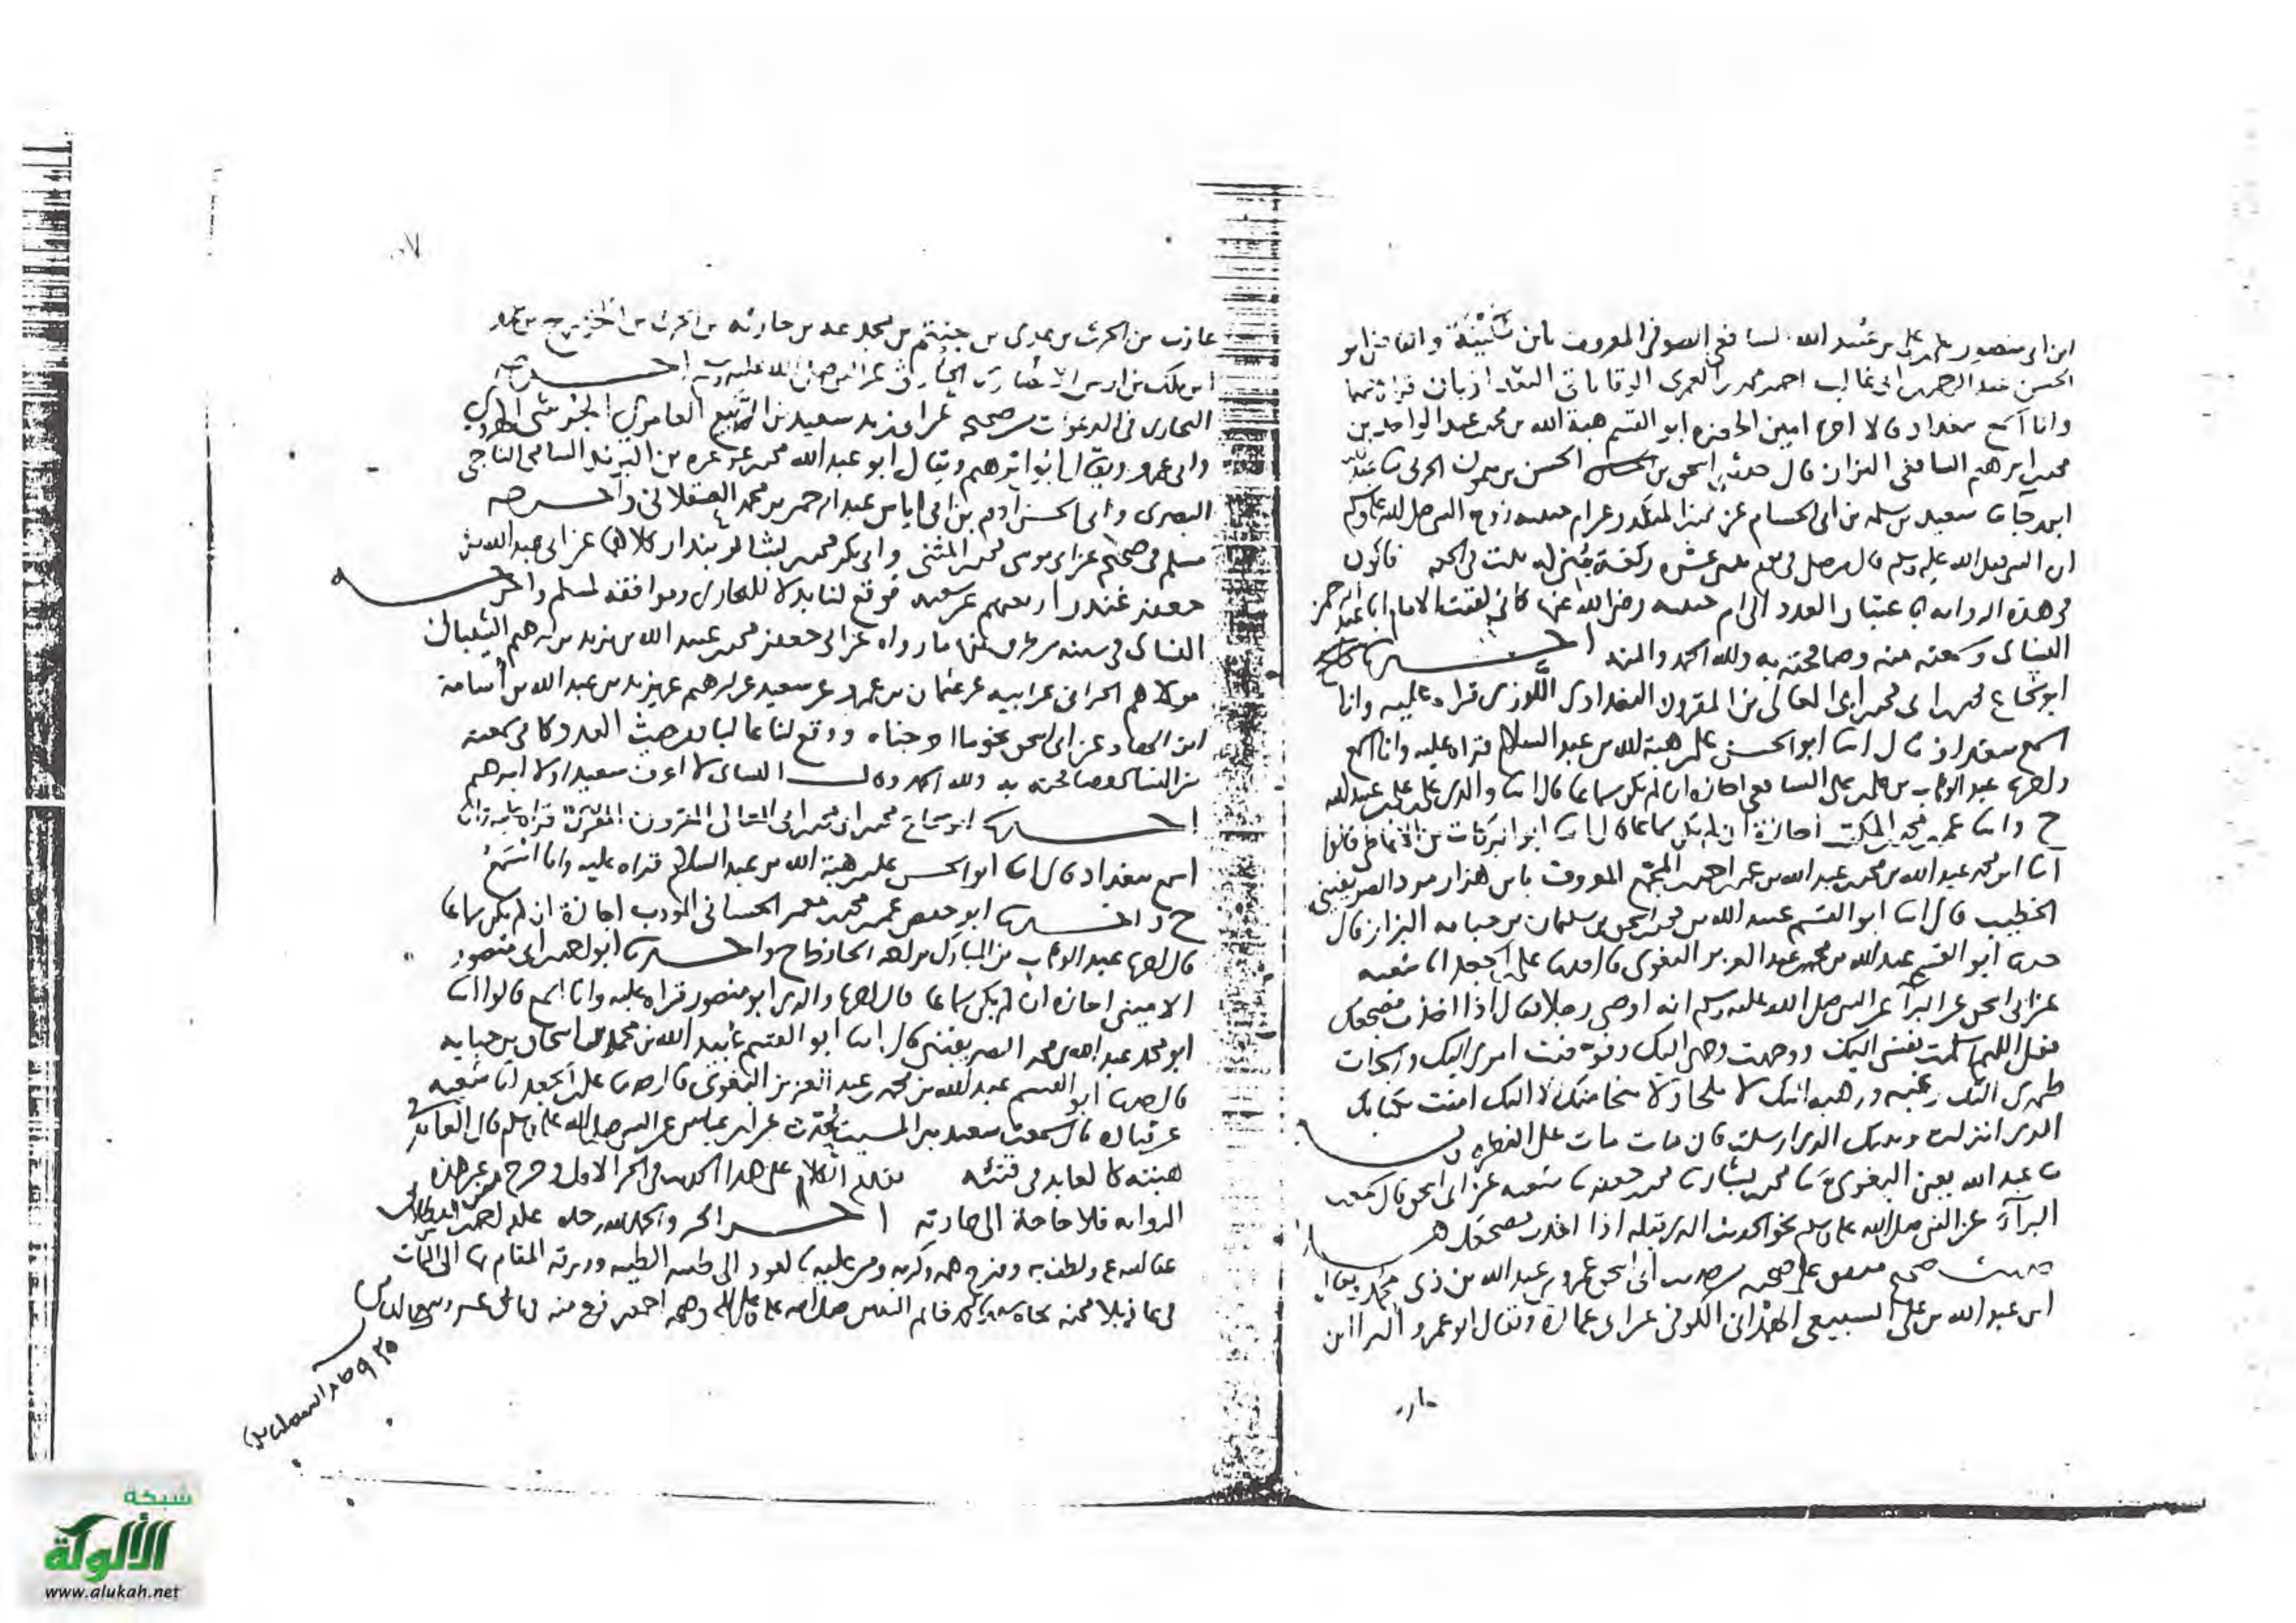 ابن ابى منصور على بن على بن عبيد الله الشافعى الصوفى المعروف بابن سكينة والقاضى ابو
الحسن عبد الرحمن بن ابى غالب احمد بن العمرى
وانا اسمع ببغداد قالا اخبرنا امين الحضرة ابو القسم هبة الله بن محمد بن عبد الواحد بن
محمد بن ابرهيم الشافعى البزاز قال حدثنى اسحق بن الحسن بن ميمون الحربى ثنا عبد الله
ابن رجا ثنا سعيد بن سلمة بن ابى الحسام عن محمد بن المنكدر عن ام حبيبة زوج النبى صلى الله عليه وسلم
ان النبى صلى الله عليه وسلم قال من صلى فى يوم ثنتى عشرة ركعة بنى له بيت فى الجنة فأكون
فى هذه الرواية باعتبار العدد الى ام حبيبة رضى الله عنها كأنى لقيت الامام ابا عبد الرحمن
النسائى وسمعته منه وصافحته به ولله الحمد والمنة اخبرنا
ابو شجاع محمد بن ابى محمد بن ابى المعالى بن المقرون البغدادى اللوزى قراءة عليه وانا
اسمع ببغداد قال انبا ابو الحسن على بن هبة الله بن عبد السلام قراة عليه وانا اسمع
واخبرنا عبد الوهاب بن على بن على الشافعى اجازة ان لم يكن سماعا قال انبا والدى على بن على بن عبيد الله
ح وانبا عمر بن محمد المكتب اجازة ان لم يكن سماعا قال انبا ابو البركات بن الانماطى قالوا
انبا ابو محمد عبد الله بن محمد بن عبد الله بن عمر بن احمد بن المجمع المعروف بابن هزارمرد الصريفينى
الخطيب قال انبا ابو القسم عبيد الله بن محمد بن اسحق بن سليمان بن حبابة البزاز قال
حدثنا ابو القسم عبد الله بن محمد بن عبد العزيز البغوى قال حدثنا على بن الجعد انا شعبة
عن ابى اسحق عن البرآ عن النبى صلى الله عليه وسلم انه اوصى رجلا فقال اذا اخذت مضجعك
فقل اللهم اسلمت نفسى اليك ووجهت وجهى اليك وفوضت امرى اليك والجات
ظهرى اليك رغبة ورهبة اليك لا ملجا ولا منجا منك الا اليك امنت بكتابك
الذى انزلت ونبيك الذى ارسلت فان مات مات على الفطرة
ثنا عبد الله يعنى البغوى ثنا محمد بن بشار ثنا محمد بن جعفر ثنا شعبة عن ابى اسحق قال سمعت
البرآء عن النبى صلى الله عليه وسلم نحو الحديث الذى قبله اذا اخذت مضجعك
حديث صحيح متفق على صحته من حديث ابى اسحق عمرو بن عبد الله بن ذى يحمد ويقال
ابن عبد الله بن على السبيعى الهمدانى الكوفى عن ابى عمارة ويقال ابو عمرو البرا ابن
عازب بن الحرث بن عدى بن جشم بن مجدعة بن حارثة بن الحرث بن الخزرج بن عمرو
ابن ملك بن اوس الانصارى الحارثى عن النبى صلى الله عليه وسلم اخرجه
البخارى فى الدعوات من صحيحه عن ابى زيد سعيد بن الربيع العامرى الحرشى الهروى
وابى عمرو ويقال ابو ابرهيم ويقال ابو عبد الله محمد بن عرعرة بن البرند السامى الناجى
البصرى وابى الحسن آدم بن ابى اياس عبد الرحمن بن محمد العسقلانى واخرجه
مسلم فى صحيحه عن ابى موسى محمد بن المثنى وابى بكر محمد بن بشار بندار كلاهما عن ابى عبد الله بن
جعفر غندر اربعتهم عن شعبة فوقع لنا بدلا للبخارى وموافقة لمسلم واخرجه
النسائى فى سننه من طرق منها ما رواه عن ابى جعفر محمد بن عبيد الله بن يزيد بن ابرهيم الشيبانى
مولاهم الحرانى عن ابيه عن عثمان بن عمرو عن سعيد عن ابرهيم عن يزيد بن عبد الله بن اسامة
ابن الهاد عن ابى اسحق نحو ما اخرجناه ووقع لنا عاليا من حيث العدد كانى سمعته
من النسائى وصافحته به ولله الحمد وقال النسائى لا اعرف سعيدا ولا ابرهيم
اخبرنا ابو شجاع محمد بن ابى محمد بن ابى المعالى المقرون المقرئ قراة عليه وانا
اسمع ببغداد قال انبا ابو الحسن على بن هبة الله بن عبد السلام قراه عليه وانا اسمع
ح واخبرنا ابو حفص عمر بن محمد بن معمر الحسانى المؤدب اجازة ان لم يكن سماعا
قال اخبرنا عبد الوهاب بن المبارك الحافظ ح واخبرنا ابو احمد بن ابى منصور
الامينى اجازه ان لم يكن سماعا قال اخبرنا والدى ابو منصور قراه عليه وانا اسمع قالوا انبا
ابو محمد عبد الله بن محمد الصريفينى قال انبا ابو القسم عبيد الله بن محمد بن اسحاق بن حبابه
قال حدثنا ابو القسم عبد الله بن محمد بن عبد العزيز البغوى قال حدثنا على بن الجعد انا شعبه
عن قتادة قال سمعت سعيد بن المسيب يحدث عن ابن عباس عن النبى صلى الله عليه وسلم قال العائد فى
هبته كالعايد فى قيئه تقدم الكلام على هذا الحديث فى الجز الاول وخرج من غير هذه
الروايه فلا حاجة الى اعادته اخر الجز والحمد لله وحده علقه احمد بن
عفا الله عنه ولطف به وفرج همه وكربه ومن عليه بالعود الى طيبه الطيبه ورزقه المقام بها الى الممات
فى عافية بلا محنة بجاه خاتم النبيين صلى الله عليه وعلى اله وصحبه اجمعين فرغ منه